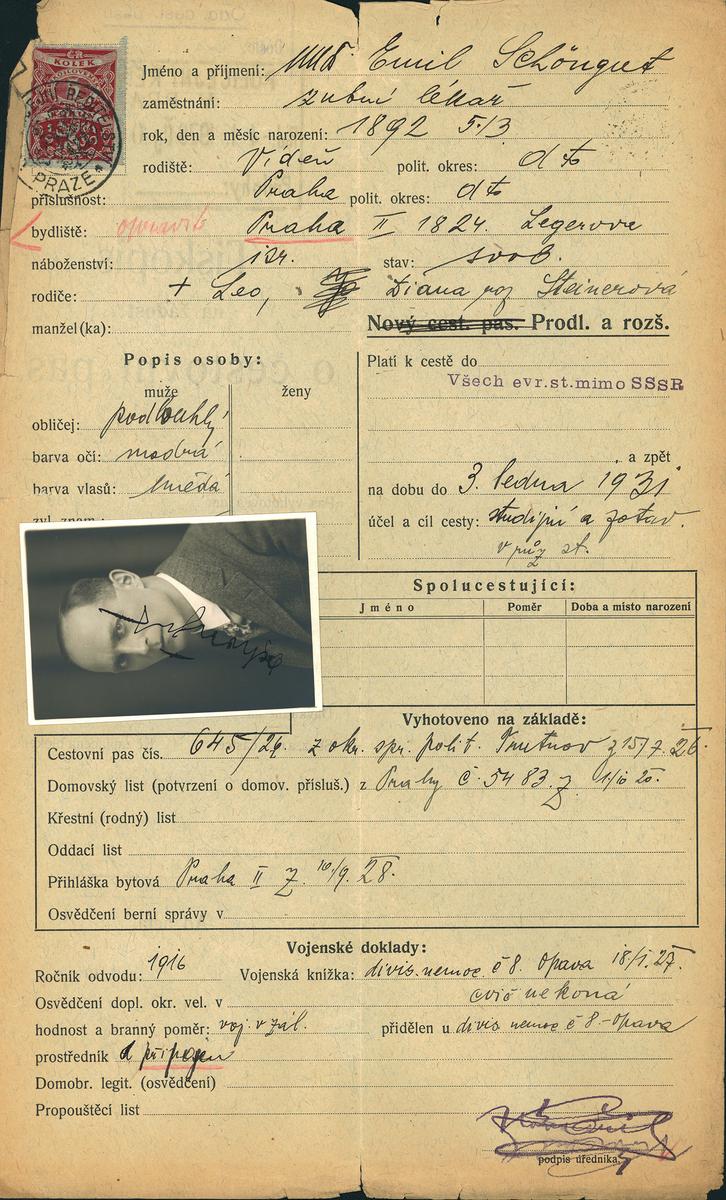 ČR
KOLEK
PRAZE
Jméno a příjmení: MUDr Emil Schöngut
zaměstnání: zubní lékař
rok, den a měsíc narození: 1892 5/3
rodiště: Vídeň polit. okres: dto
příslušnost: Praha polit. okres: dto
bydliště: opraviti Praha II 1824 Legerova
náboženství: izr. stav: svob.
rodiče: + Leo, Diana roz Steinerová
manžel(ka):
Nový cest. pas. Prodl. a rozš.
Popis osoby:
muže ženy
obličej: podlouhlý
barva očí: modrá
barva vlasů: hnědá
zvl. znam.
Platí k cestě do
Všech evr.st.mimo SSSR
a zpět
na dobu do 3. ledna 1931
účel a cíl cesty: studijní a zotav.
v růz st.
Spolucestující:
Jméno Poměr Doba a místo narození
Vyhotoveno na základě:
Cestovní pas čís. 645/26. z okr. spr. polit. Trutnov z 15/7. 26.
Domovský list (potvrzení o domov. přísluš.) z Prahy č. 5483 z 1/10 20.
Křestní (rodný) list
Oddací list
Přihláška bytová Praha II z 10/9. 28.
Osvědčení berní správy v
Vojenské doklady:
Ročník odvodu: 1916 Vojenská knížka: divis. nemoc. č 8. Opava 18/I. 27.
Osvědčení dopl. okr. vel. v cvič nekoná
hodnost a branný poměr: voj. v zál. přidělen u divis nemoc č 8 - Opava
prostředník připojen
Domobr. legit. (osvědčení)
Propouštěcí list
podpis úředníka.